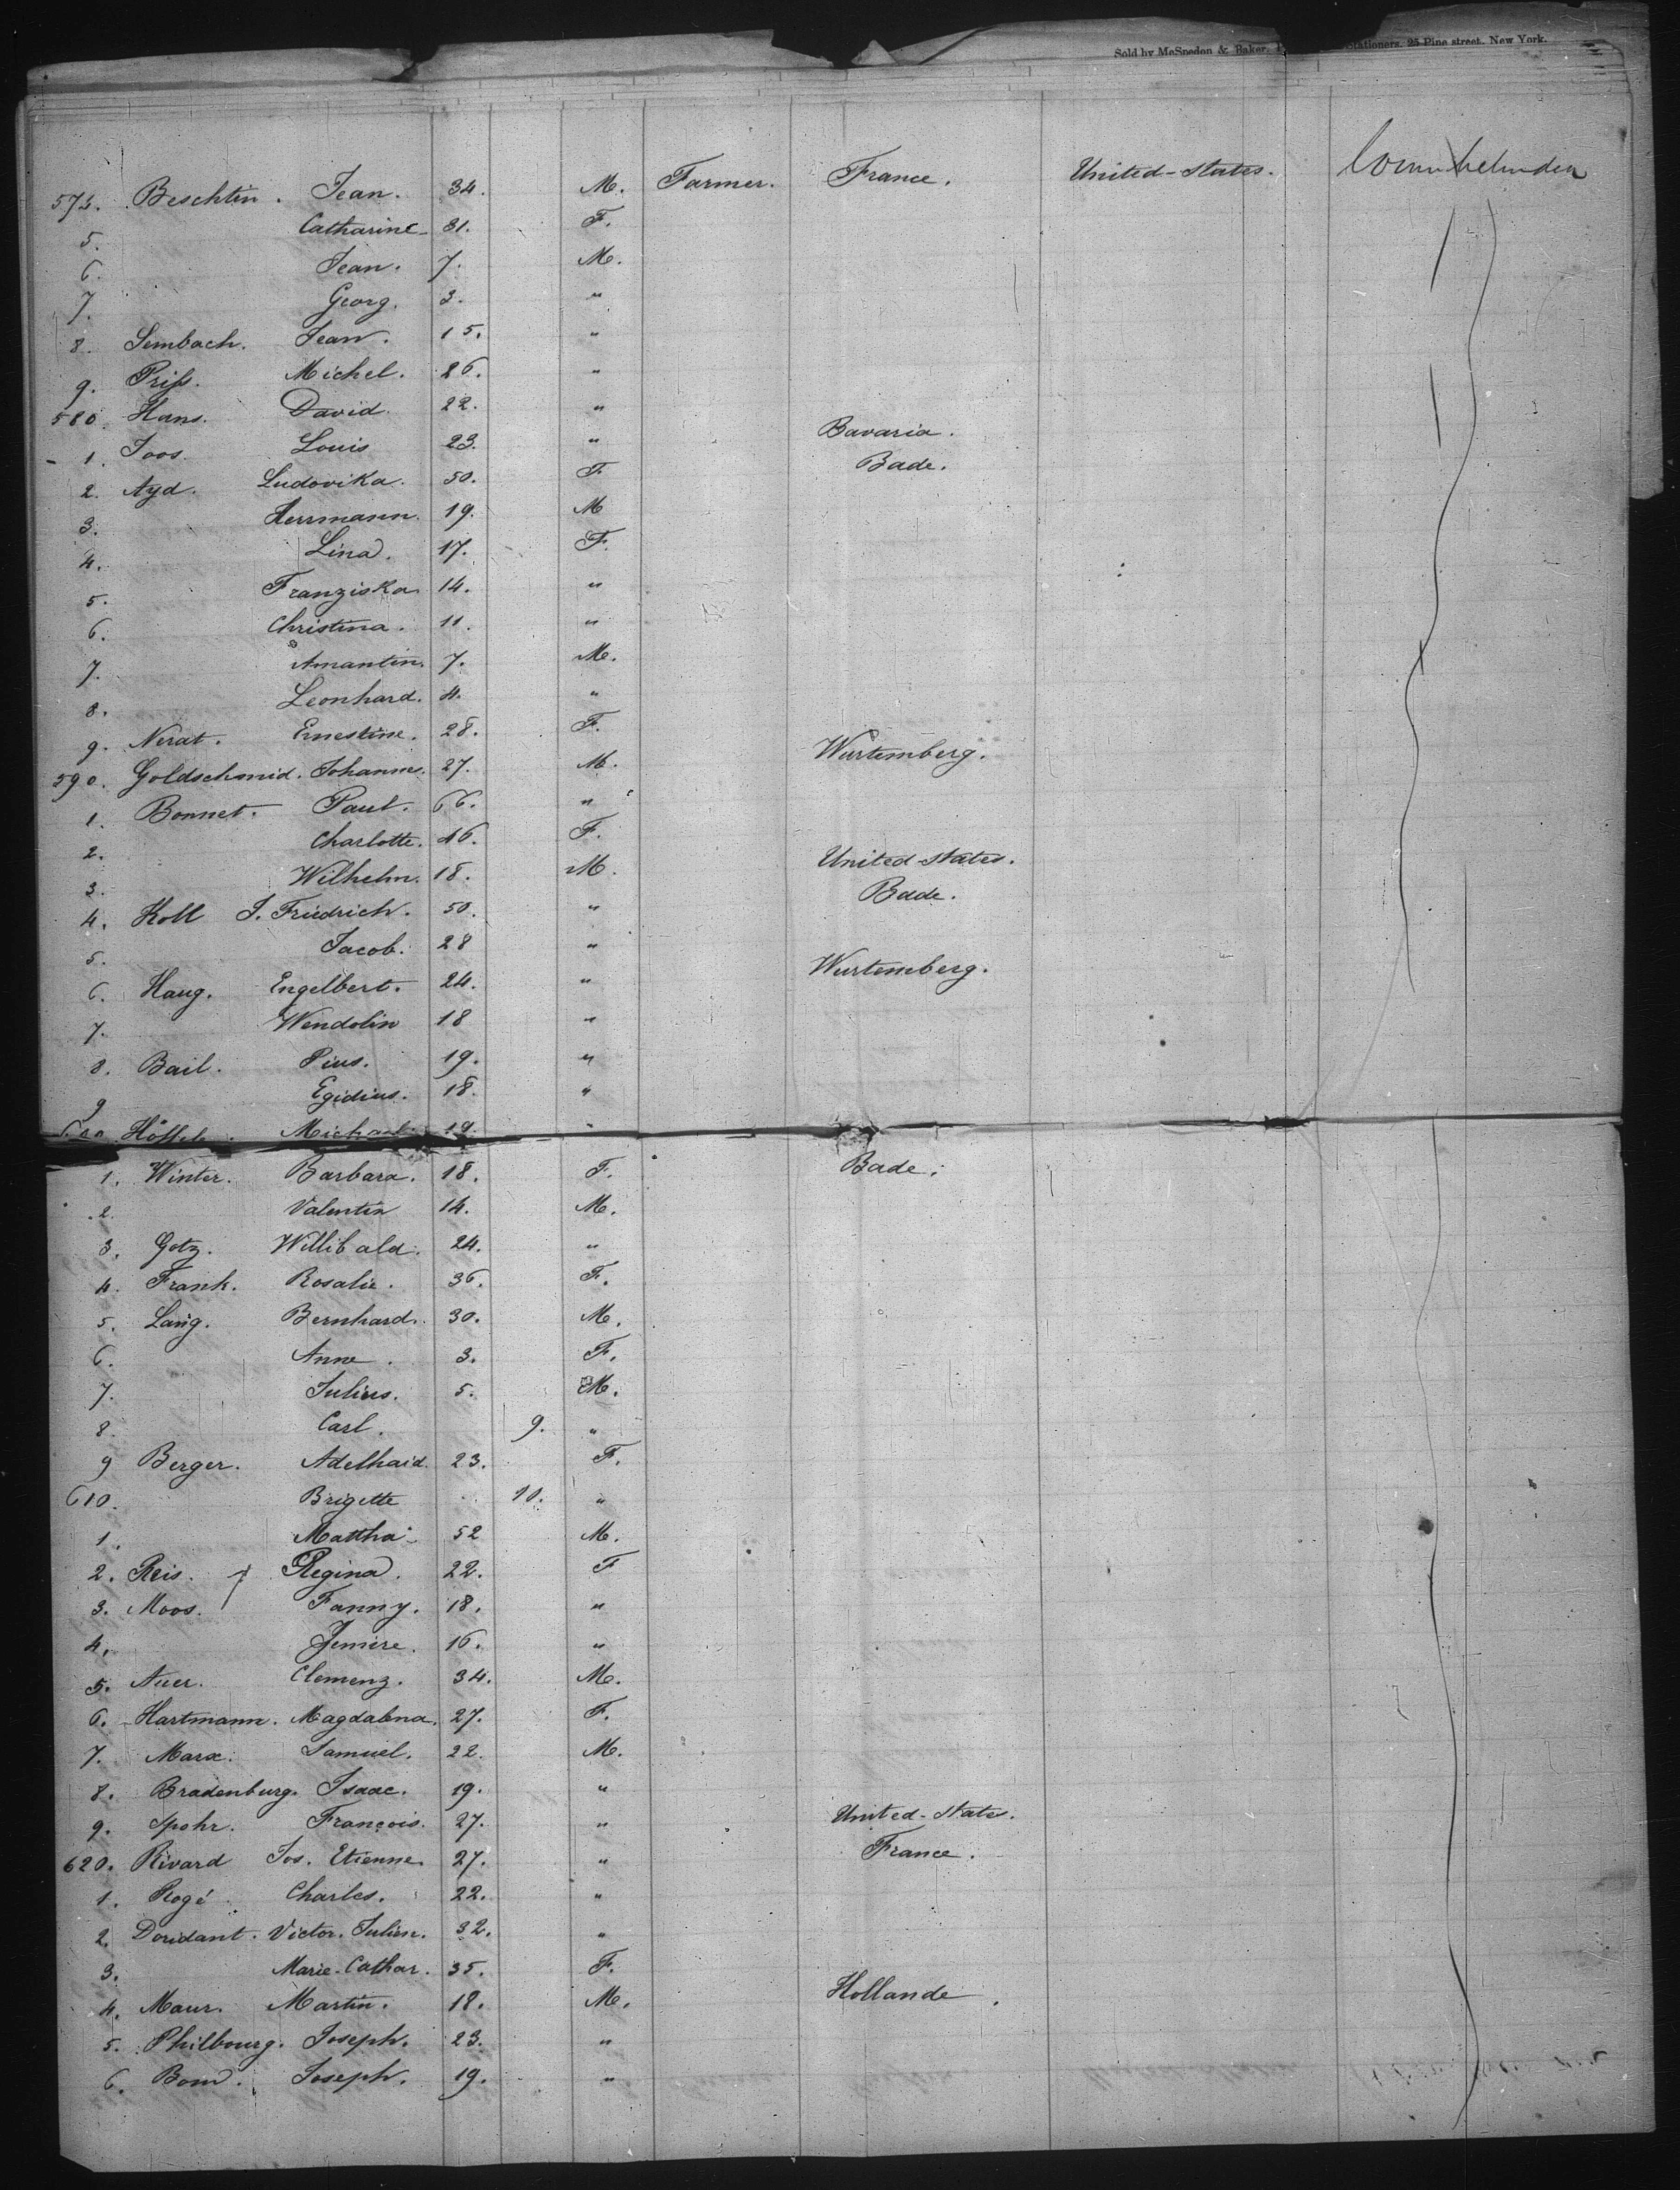 Sold by McSpedon & Baker, Stationers, 25 Pine street, New York.
574. Beschtin. Jean. 34. M. Farmer. France. United-States.
5. Catharine 31. F.
6. Jean. 7. M.
7. Georg. 3. "
8. Sembach. Jean. 15. "
9. Priss. Michel. 26. "
580. Hans. David. 22. "
1. Joos. Louis 23. " Bavaria.
2. Ayd. Ludovika. 50. F. Bade.
3. Herrmann. 19. M
4. Lina. 17. F.
5. Franziska 14. "
6. Christina. 11. "
7. Amantin. 7. M.
8. Leonhard. 4. "
9. Nerat. Ernestine. 28. F.
590. Goldschmid. Johannes. 27. M. Wurtemberg.
1. Bonnet. Paul. 66. "
2. Charlotte. 46. F.
3. Wilhelm. 18. M. United-States.
4. Koll J. Friedrich. 50. " Bade.
5. Jacob. 28 "
6. Haug. Engelbert. 24. " Wurtemberg.
7. Wendolin 18 "
8. Bail. Pius. 19. "
9 Egidius. 18. "
600 Michael 19. "
1. Winter. Barbara. 18. F. Bade.
2. Valentin 14. M.
3. Gotz. Willibald. 24. "
4. Frank. Rosalie. 36. F.
5. Lang. Bernhard. 30. M.
6. Anne. 3. F.
7. Julius. 5. M.
8. Carl. 9. "
9 Berger. Adelhaid. 23. F.
610. Brigette 10. "
1. Mattha 52 M.
2. Reis. Regina. 22. F
3. Moos. Fanny. 18. "
4. 16. "
5. Auer. Clemenz. 34. M.
6. Hartmann. Magdalena. 27. F.
7. Marx. Samuel. 22. M.
8. Bradenburg. Isaac. 19. "
9. Spohr. François. 27. " United-States.
620. Rivard Jos. Etienne. 27. " France.
1. Rogé. Charles. 22. "
2. Doridant. Victor. Julien. 32. "
3. Marie-Cathar. 35. F.
4. Maur. Martin. 18. M. Hollande.
5. Philbourg. Joseph. 23. "
6. Joseph. 19. "